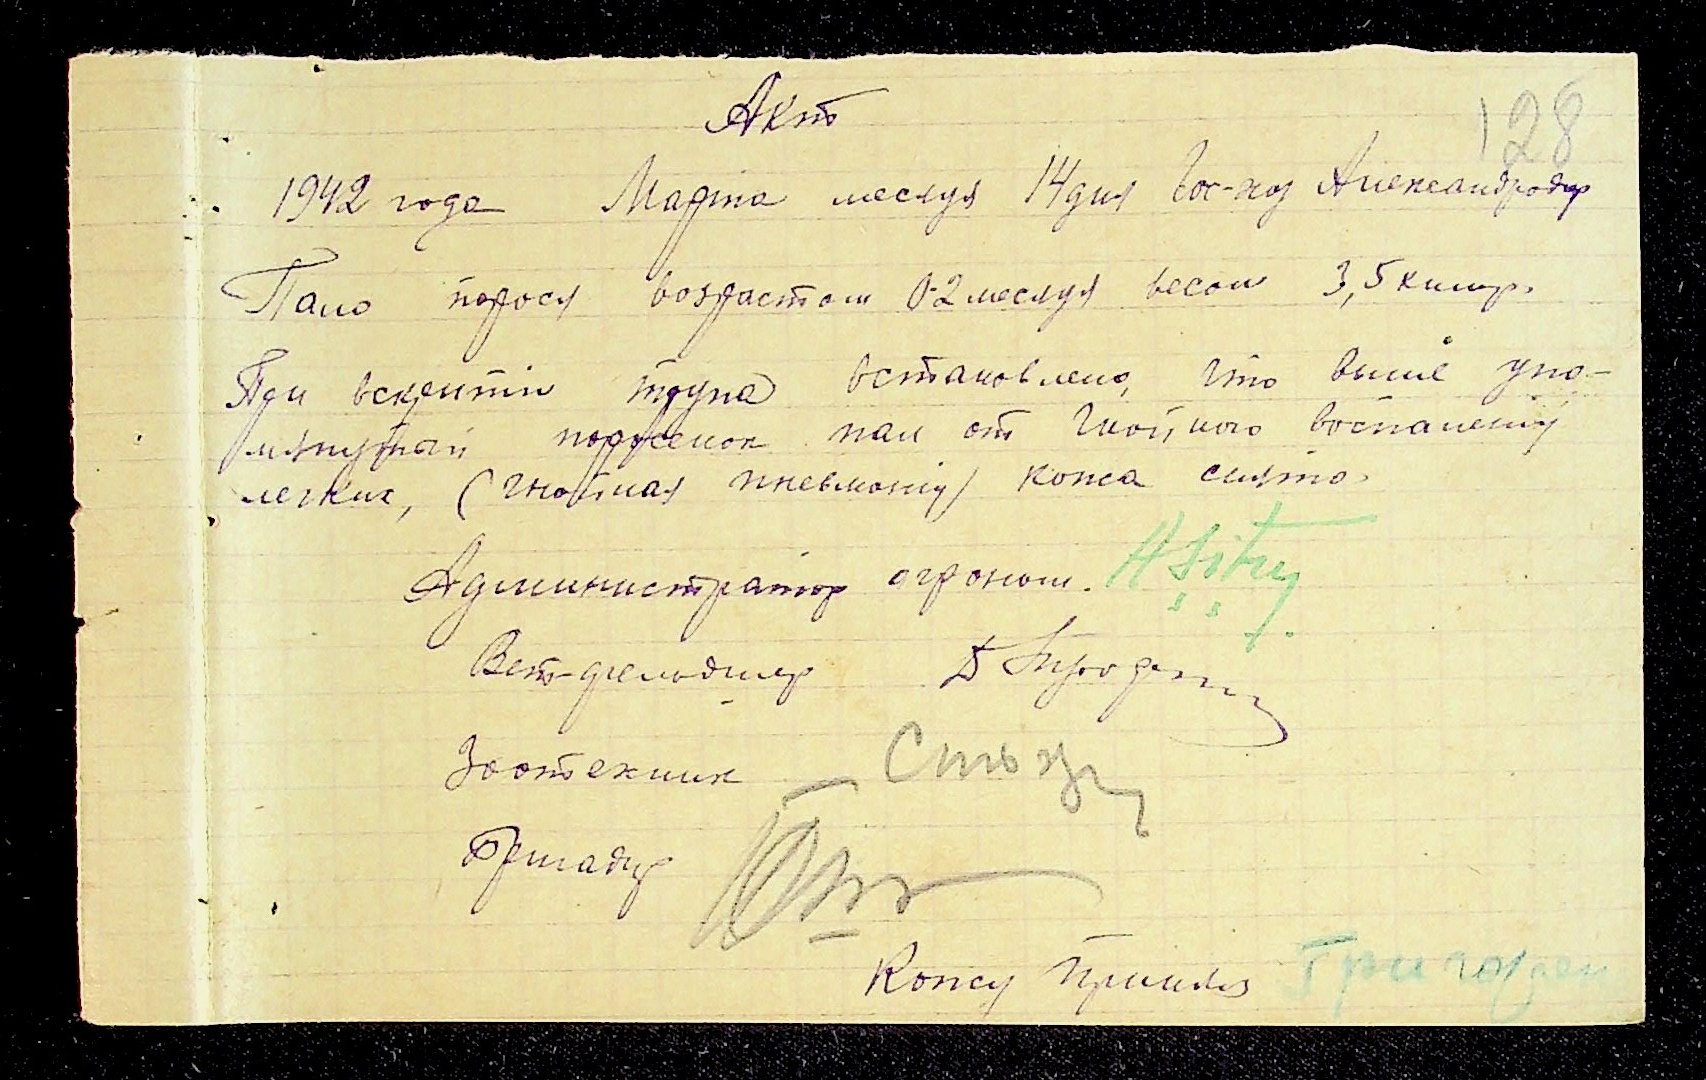 Акт
128
1942 года Марта месяця 14 дня Гос-ху Александродар
Пало порося возрастом 0-2 месяця весом 3,5 килгр.
При вскрытіи трупа встановлено, что выше упо-
мянутый поросенок пал от гнойного воспаления
легких, (гнойная пневмонія) кожа снята.
Администратор агроном.
Вет-фельдшер
Зоотехник
Бригадир
Кожу принял Григорен